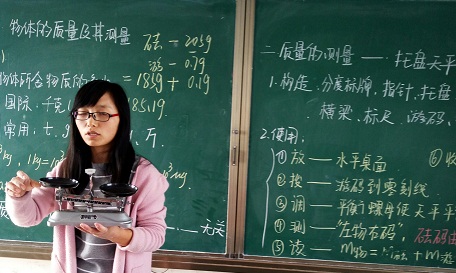 物体的质量及其测量
砝 — 205g
游 — 0.19
物体所含物质的多
= 185g + 0.19
国际:千克
= 185.19.
常用:
1kg = 10
无关
二.质量的测量 —— 托盘天平
1.构造、分度标牌、指针、托盘
横梁、标尺、游码、
2.使用.
① 放 — 水平桌面
② 拨 — 游码到零刻线
③ 调 — 平衡螺母使天平平
④ 测 — "左物右码",砝码由
⑤ 读 — m物 = m砝 + m游
⑥ 收